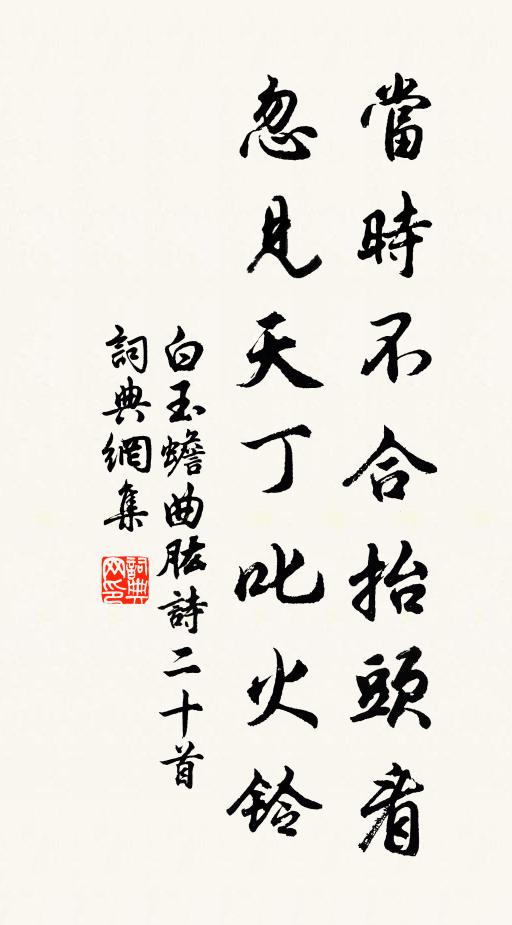 當時不合抬頭看
忽見天丁叱火鈴
白玉蟾曲肱詩二十首
詞典網集
詞典网印